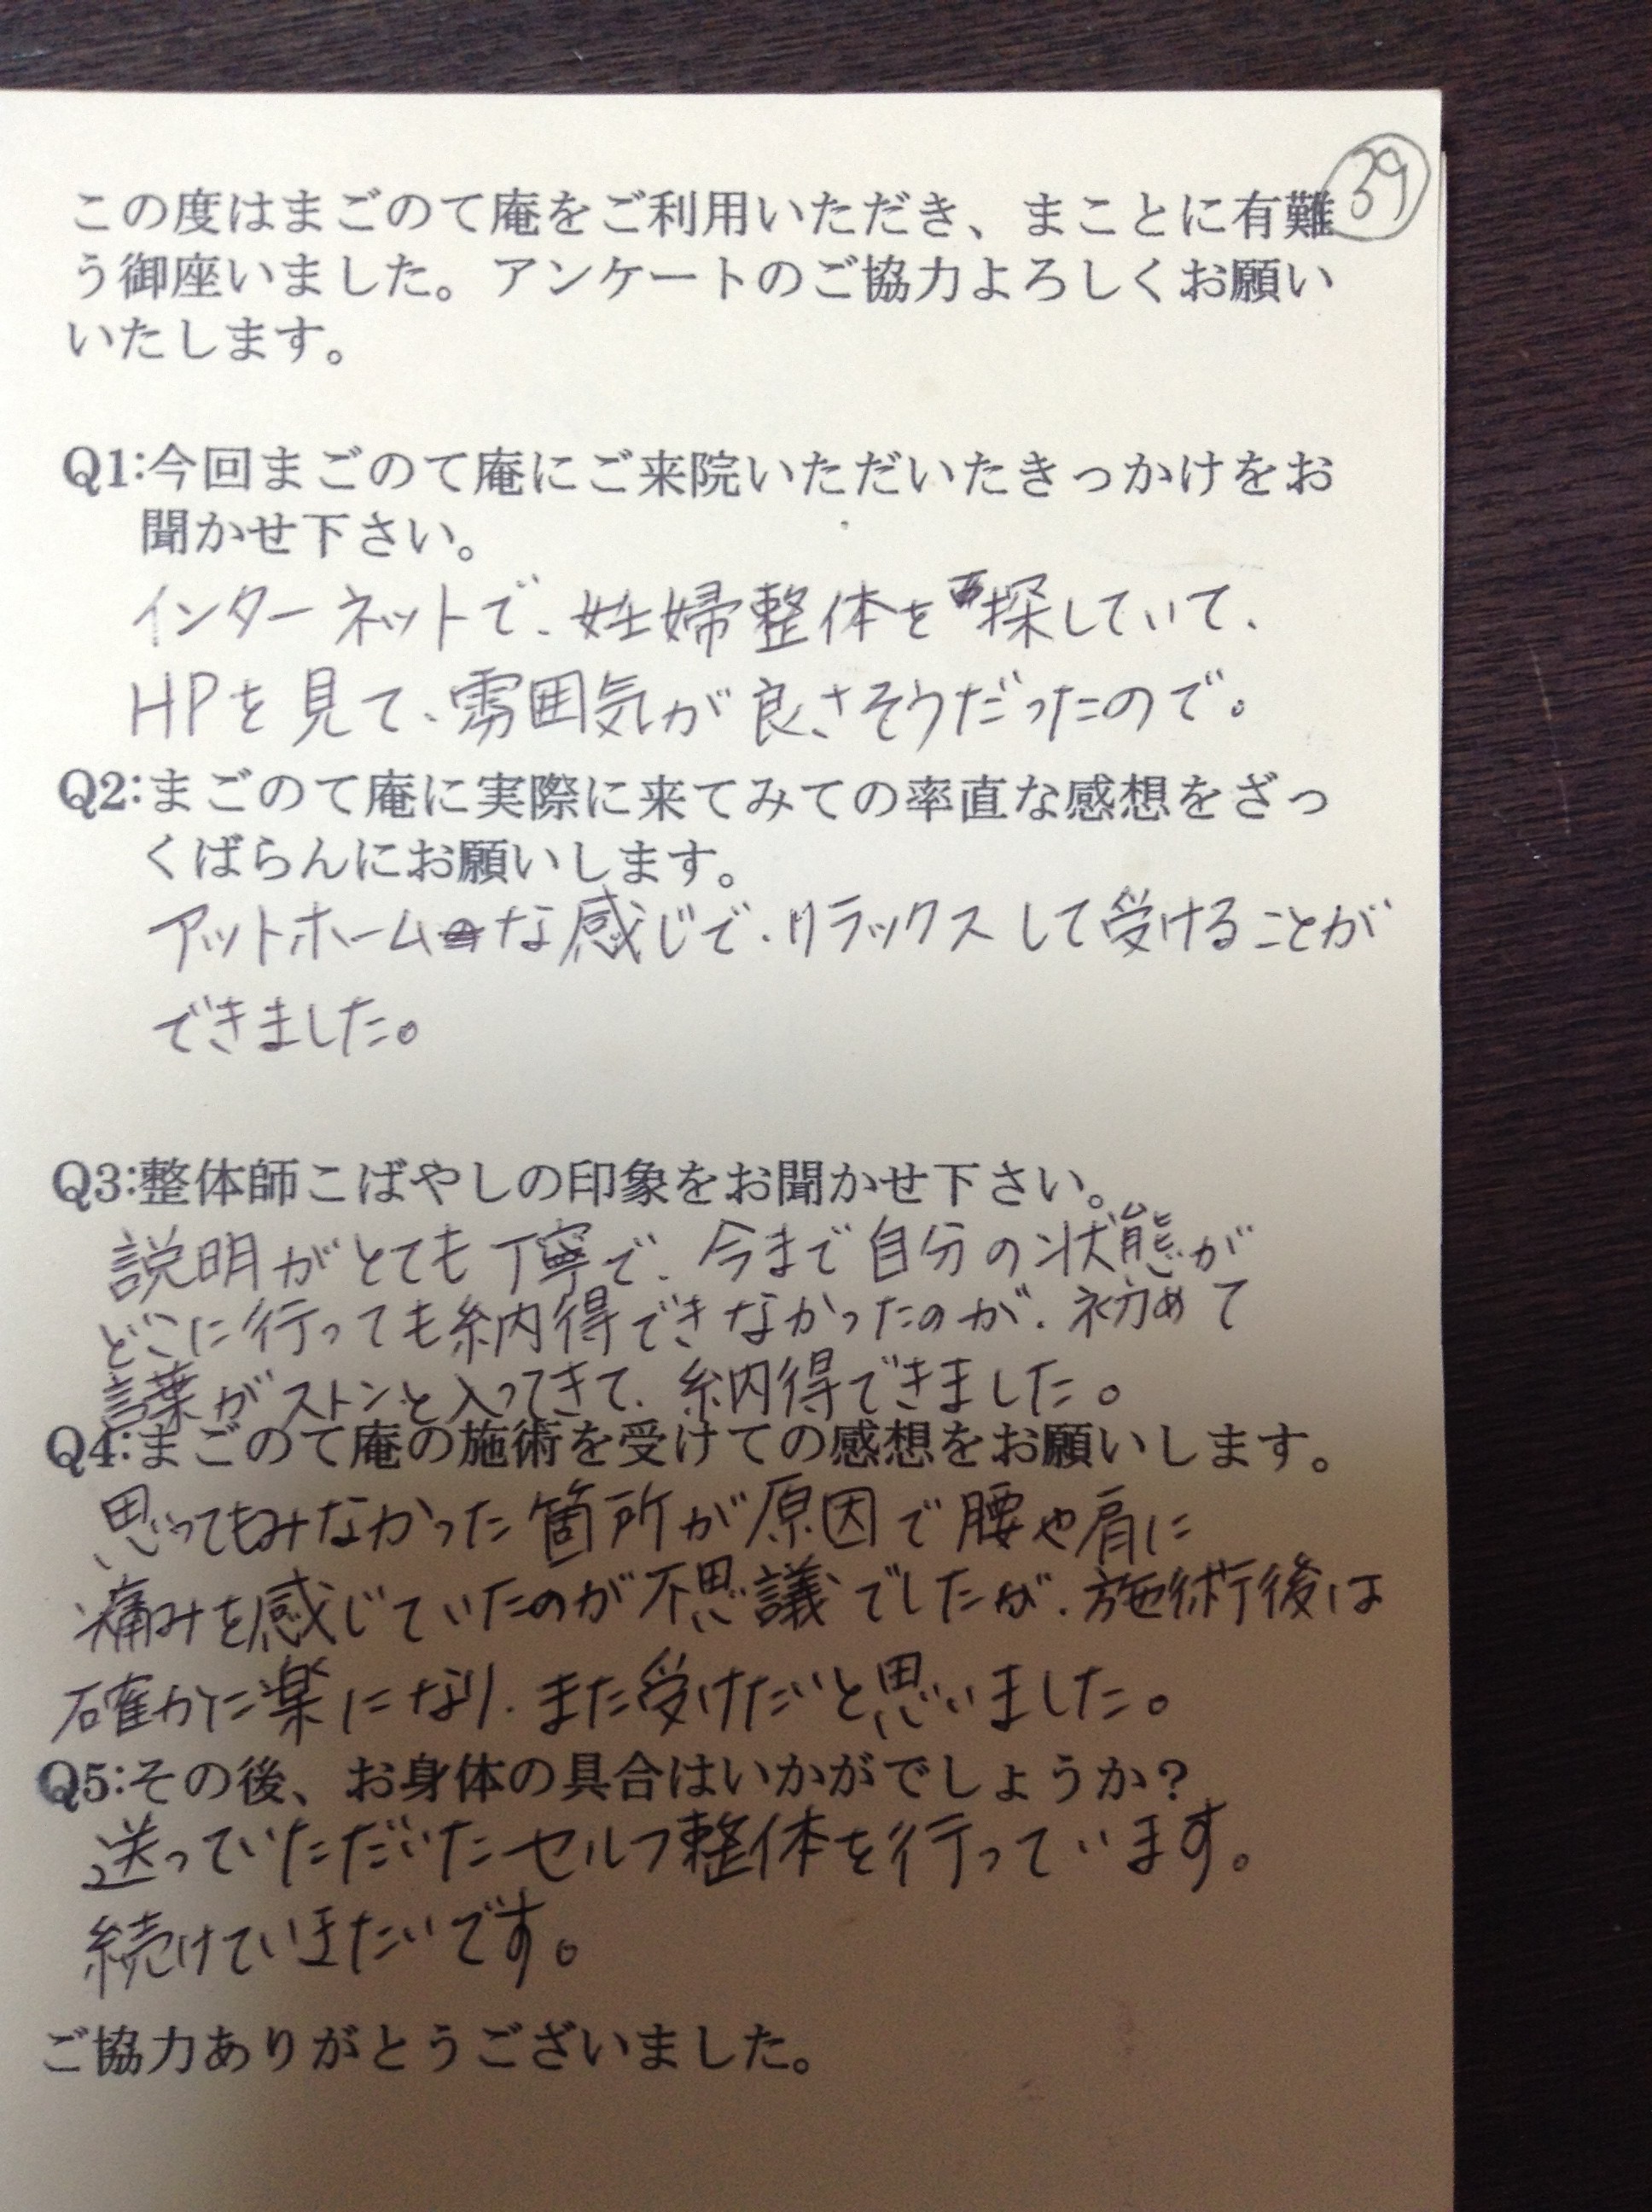 ㊴
この度はまごのて庵をご利用いただき、まことに有難
う御座いました。アンケートのご協力よろしくお願い
いたします。
Q1:今回まごのて庵にご来院いただいたきっかけをお
聞かせ下さい。
インターネットで、妊婦整体を探していて、
HPを見て、雰囲気が良さそうだったので。
Q2:まごのて庵に実際に来てみての率直な感想をざっ
くばらんにお願いします。
アットホームな感じで、リラックスして受けることが
できました。
Q3:整体師こばやしの印象をお聞かせ下さい。
説明がとても丁寧で、今まで自分の状態が
どこに行っても納得できなかったのが、初めて
言葉がストンと入ってきて、納得できました。
Q4:まごのて庵の施術を受けての感想をお願いします。
思ってもみなかった箇所が原因で腰や肩に
痛みを感じていたのが不思議でしたが、施術後は
確かに楽になり、また受けたいと思いました。
Q5:その後、お身体の具合はいかがでしょうか？
送っていただいたセルフ整体を行っています。
続けていきたいです。
ご協力ありがとうございました。